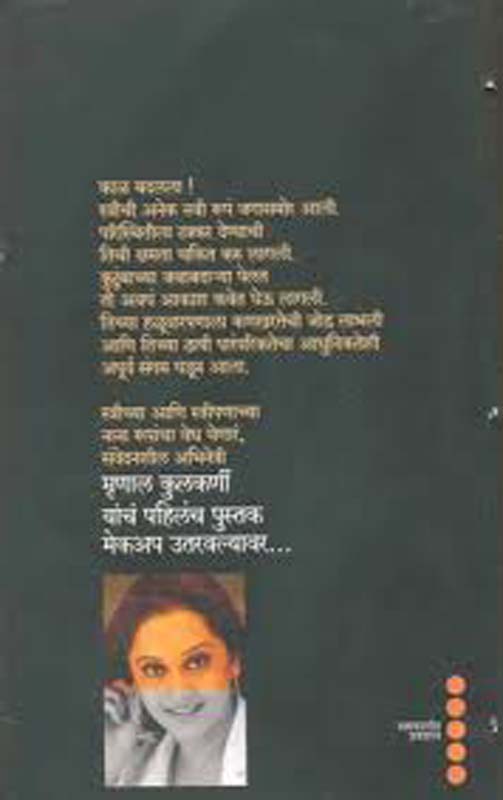 काळ बदलला !
स्त्रीची अनेक नवी रूपं जगासमोर आली.
परिस्थितीला टक्कर देण्याची
तिची क्षमता चकित करू लागली.
कुटुंबाच्या जबाबदाऱ्या पेलत
ती अवघं आकाश कवेत घेऊ लागली.
तिच्या हळुवारपणाला कणखरतेची जोड लाभली
आणि तिच्या ठायी पारंपरिकतेचा आधुनिकतेशी
अपूर्व संगम घडून आला.
स्त्रीच्या आणि स्त्रीपणाच्या
नाना रूपांचा वेध घेणारं,
संवेदनशील अभिनेत्री
मृणाल कुलकर्णी
यांचं पहिलंच पुस्तक
मेकअप उतरवल्यावर...
प्रकाशन